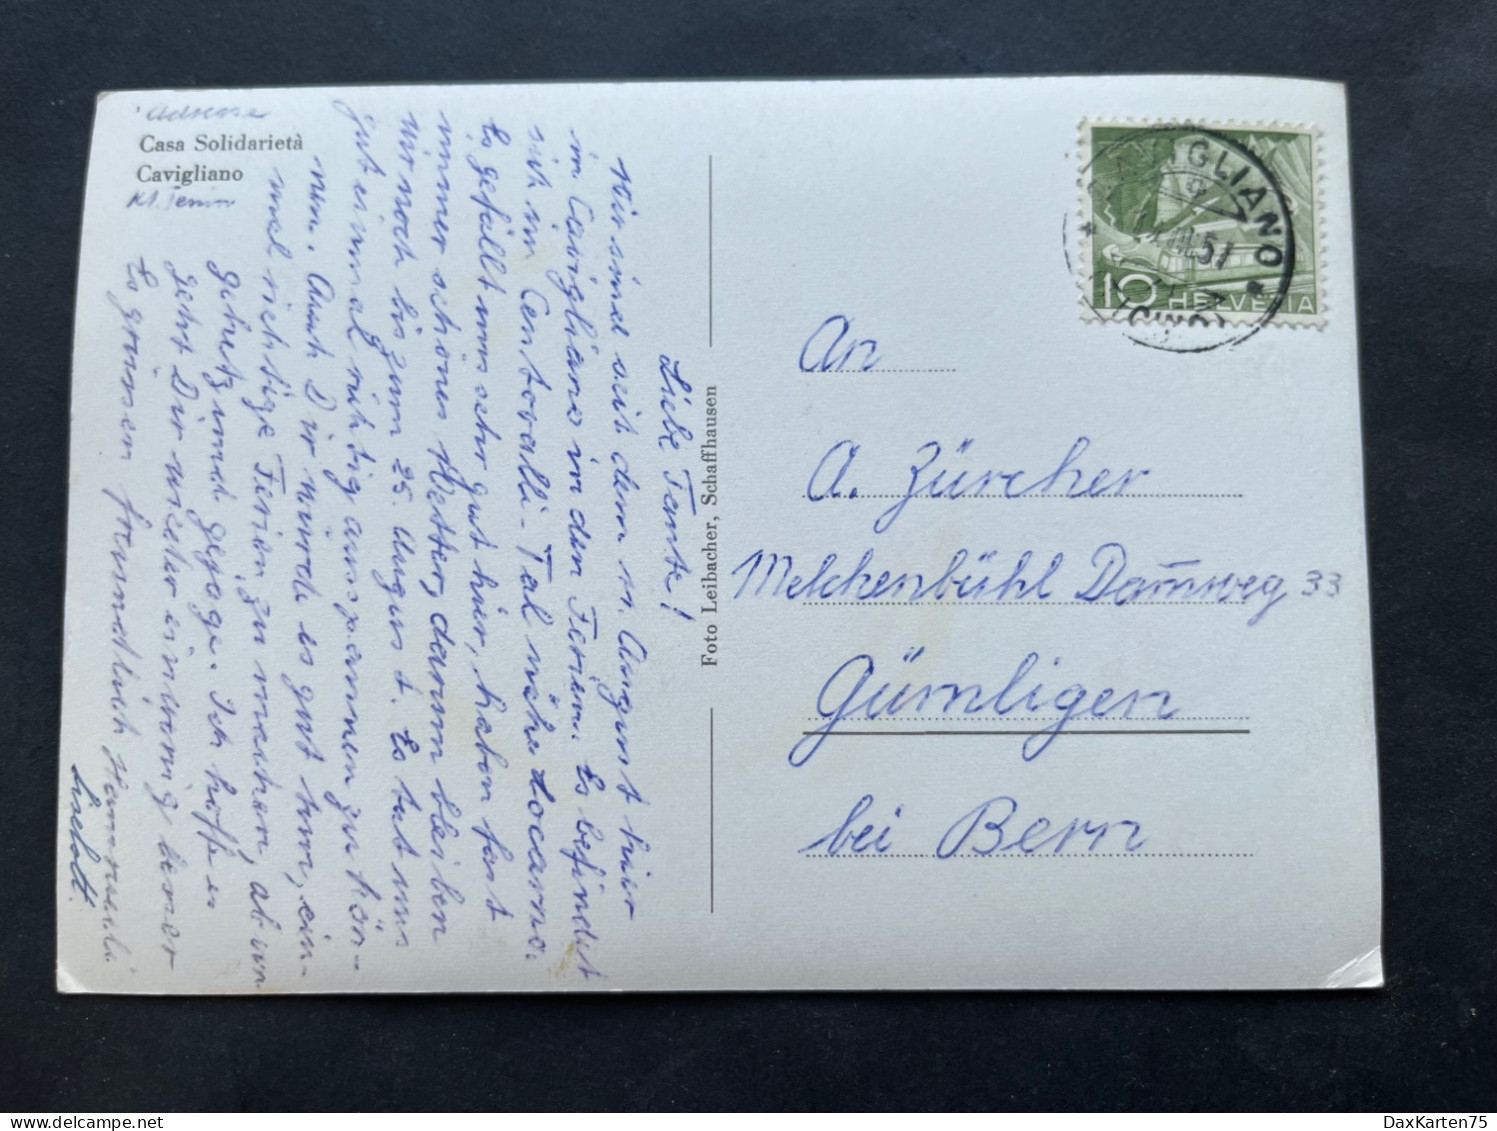 Adresse
Casa Solidarietà
Cavigliano
Kt. Tessin
Liebe Tante!
Wir sind seit dem 11. August hier
in Cavigliano in den Ferien. Es befindet
sich im Centovalli-Tal nähe Locarno.
Es gefällt uns sehr gut hier, haben fast
immer schönes Wetter, darum bleiben
wir noch bis zum 25. August. Es tut uns
gut einmal richtig ausspannen zu kön-
nen. Auch Dir würde es gut tun, ein-
mal richtige Ferien zu machen, ab und
gehetz und gejage. Ich hoffe es
geht Dir wieder ein wenig besser
Es grüssen freundlich Hansruedi
Liselott.
Foto Leibacher, Schaffhausen
CAVIGLIANO
VIII.51
(TICINO)
10 HELVETIA
An
A. Zürcher
Melchenbühl Dammweg 33
Gümligen
bei Bern
DaxKarten75